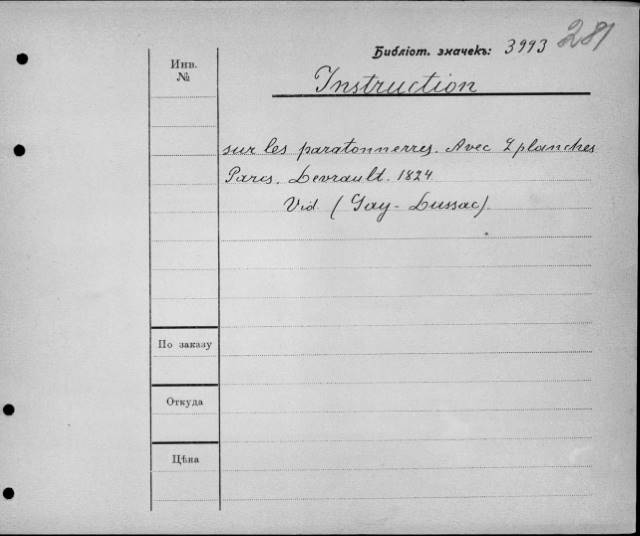 281
Библіот. значекъ: 3993
Инв. №
Instruction
sur les paratonnerres. Avec 2 planches
Paris. Levrault. 1824
Vid. (Gay-Lussac).
По заказу
Откуда
Цѣна